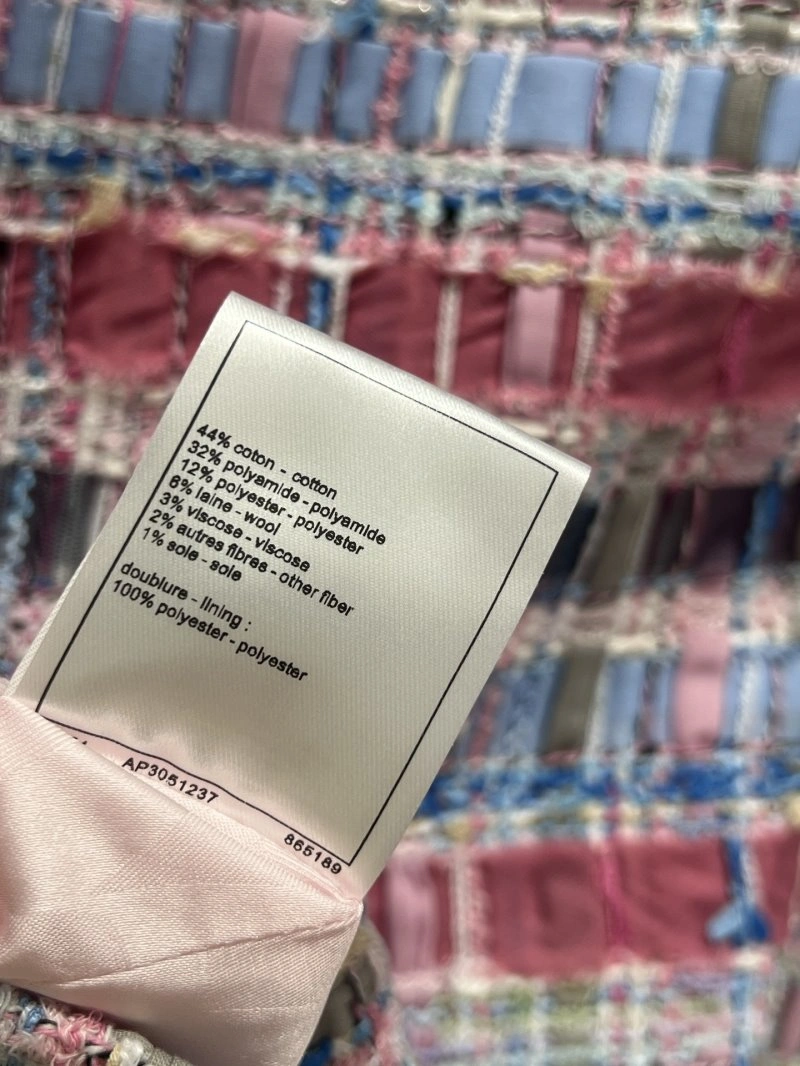 44% coton - cotton
32% polyamide - polyamide
12% polyester - polyester
6% laine - wool
3% viscose - viscose
2% autres fibres - other fiber
1% soie - soie
doublure - lining :
100% polyester - polyester
AP3051237
865189